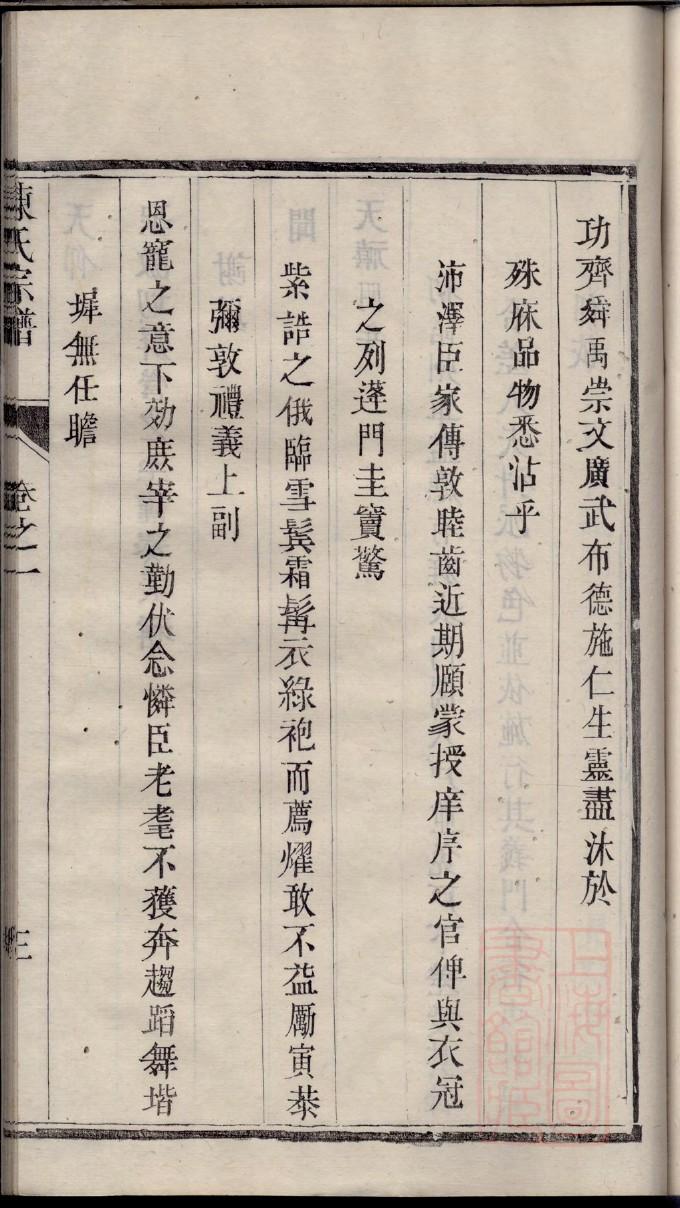 功齊舜禹崇文廣武布德施仁生靈盡沐於
殊庥品物悉沾乎
沛澤臣家傳敦睦齒近期頤蒙授庠序之官俾與衣冠
之列蓬門圭竇驚
紫誥之俄臨雪鬂霜髯衣綠袍而薦燿敢不益勵寅恭
彌敦禮義上副
恩寵之意下効庻宰之勤伏念憐臣老耄不獲奔趨蹈舞堦
墀無任瞻
陳氏宗譜
卷之一
三
上海圖書館藏